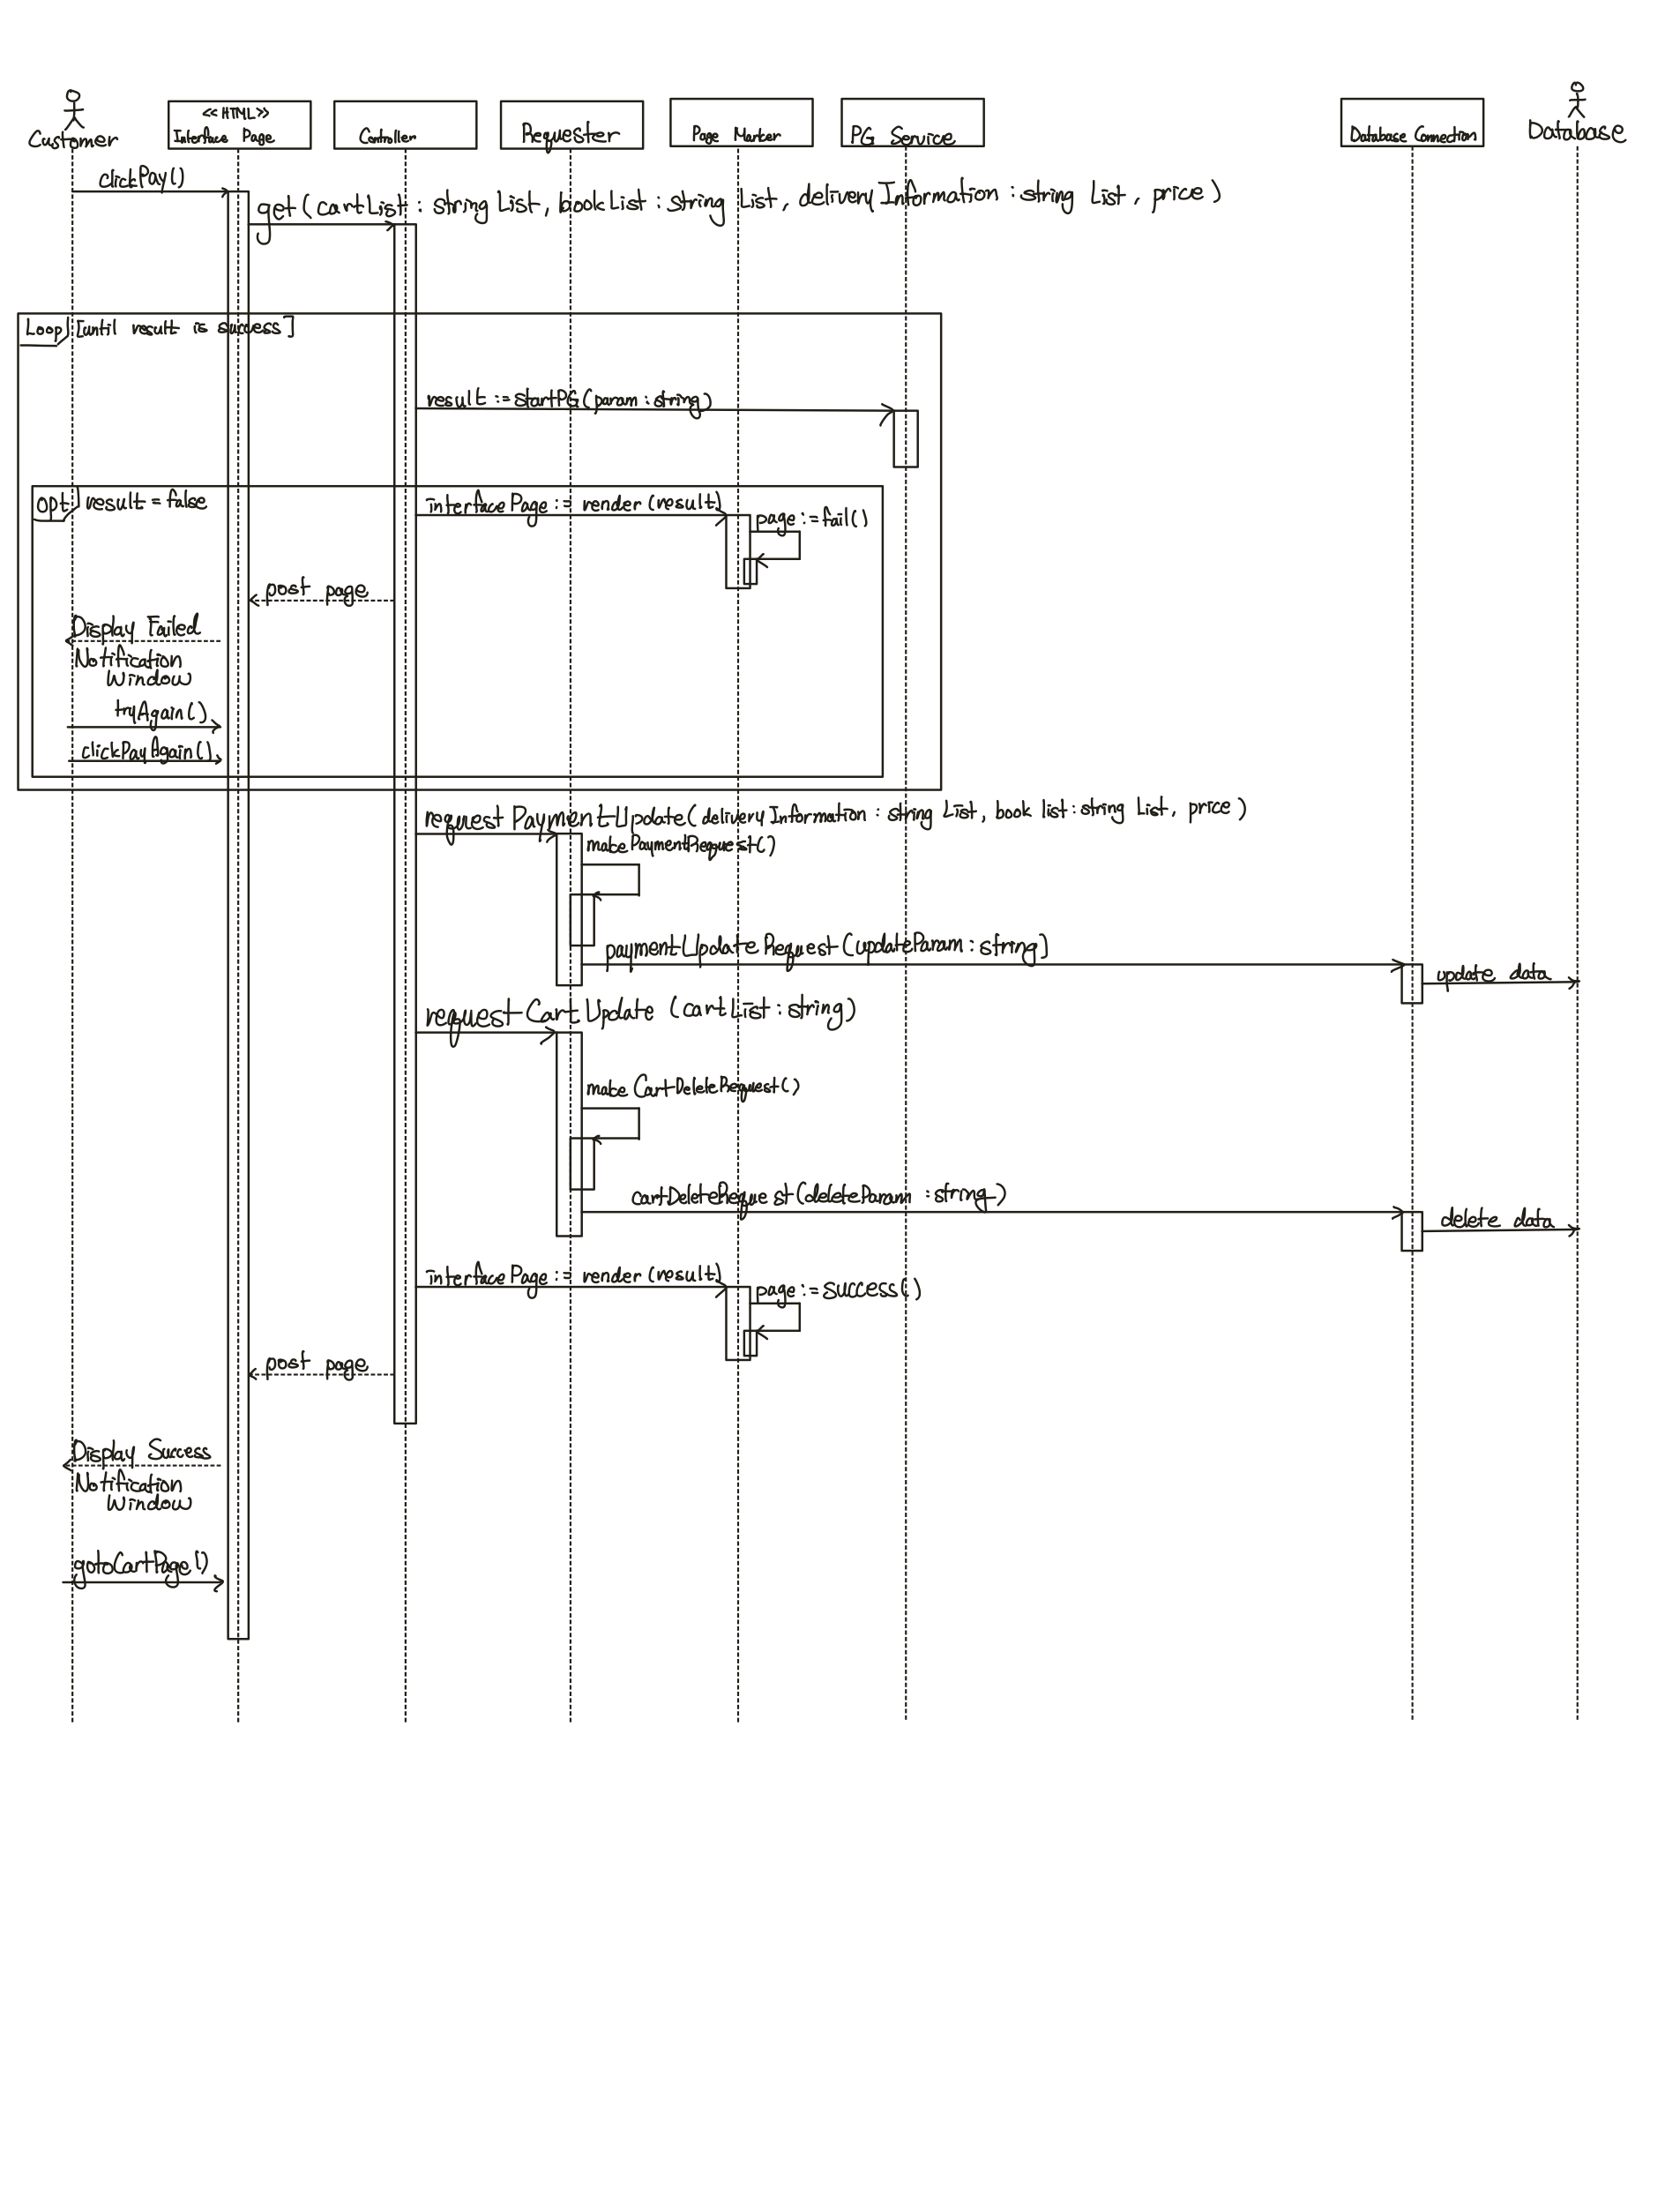 Customer
<< HTML >>
Interface Page
Controller
Requester
Page Marker
PG Service
Database Connection
Database
clickPay()
get(cartList : string List, bookList : string List, deliveryInformation : string List, price)
Loop [until result is success]
result := startPG(param : string)
opt result = false
interfacePage := render(result)
page := fail()
post page
Display Failed
Notification
Window
tryAgain()
clickPayAgain()
requestPaymentUpdate(deliveryInformation : string List, book list : string List, price)
makePaymentRequest()
paymentUpdateRequest(updateParam : string)
update data
requestCartUpdate(cartList : string)
makeCartDeleteRequest()
cartDeleteRequest(deleteParam : string)
delete data
interfacePage := render(result)
page := success()
post page
Display Success
Notification
Window
gotoCartPage()